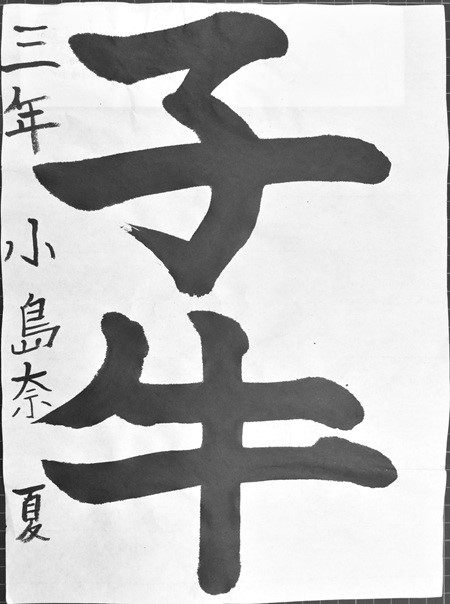 子牛
三年 小島奈夏